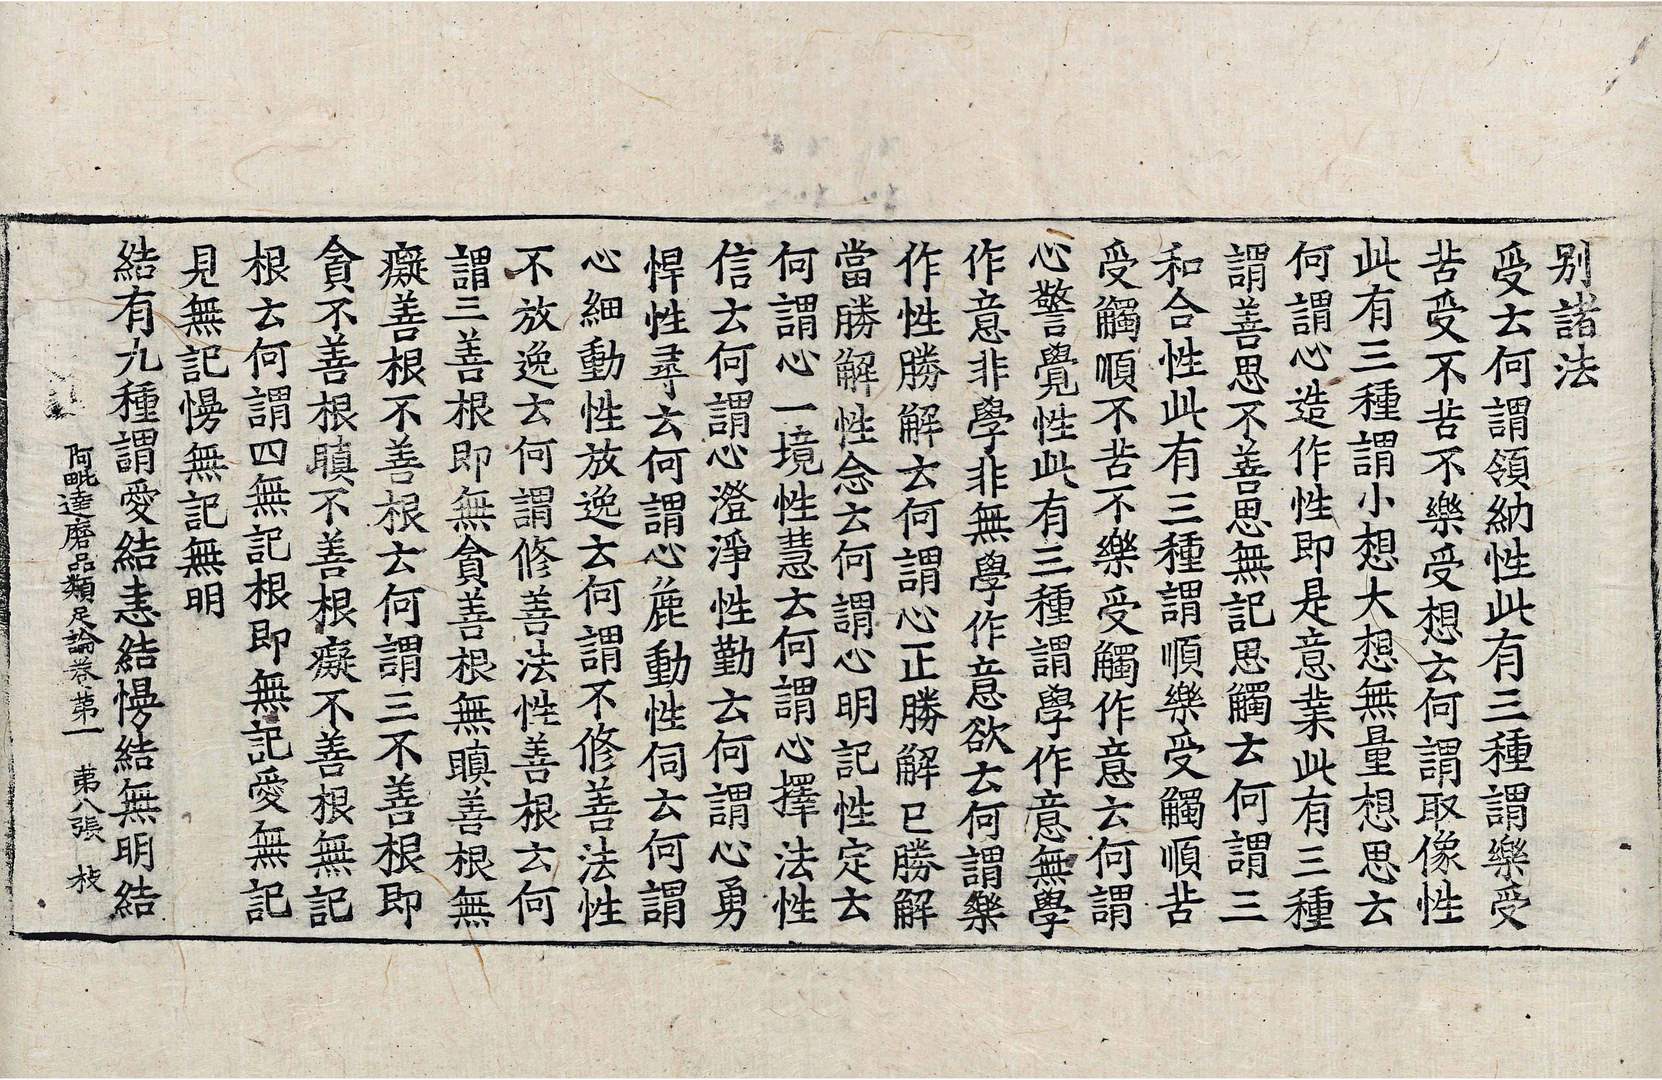 别諸法
受云何謂領納性此有三種謂樂受
苦受不苦不樂受想云何謂取像性
此有三種謂小想大想無量想思云
何謂心造作性即是意業此有三種
謂善思不善思無記思觸云何謂三
和合性此有三種謂順樂受觸順苦
受觸順不苦不樂受觸作意云何謂
心警覺性此有三種謂學作意無學
作意非學非無學作意欲云何謂樂
作性勝解云何謂心正勝解已勝解
當勝解性念云何謂心明記性定云
何謂心一境性慧云何謂心擇法性
信云何謂心澄淨性勤云何謂心勇
悍性尋云何謂心麁動性伺云何謂
心細動性放逸云何謂不修善法性
不放逸云何謂修善法性善根云何
謂三善根即無貪善根無瞋善根無
癡善根不善根云何謂三不善根即
貪不善根瞋不善根癡不善根無記
根云何謂四無記根即無記愛無記
見無記慢無記無明
結有九種謂愛結恚結慢結無明結
阿毗達磨品類足論卷第一 第八張 枝